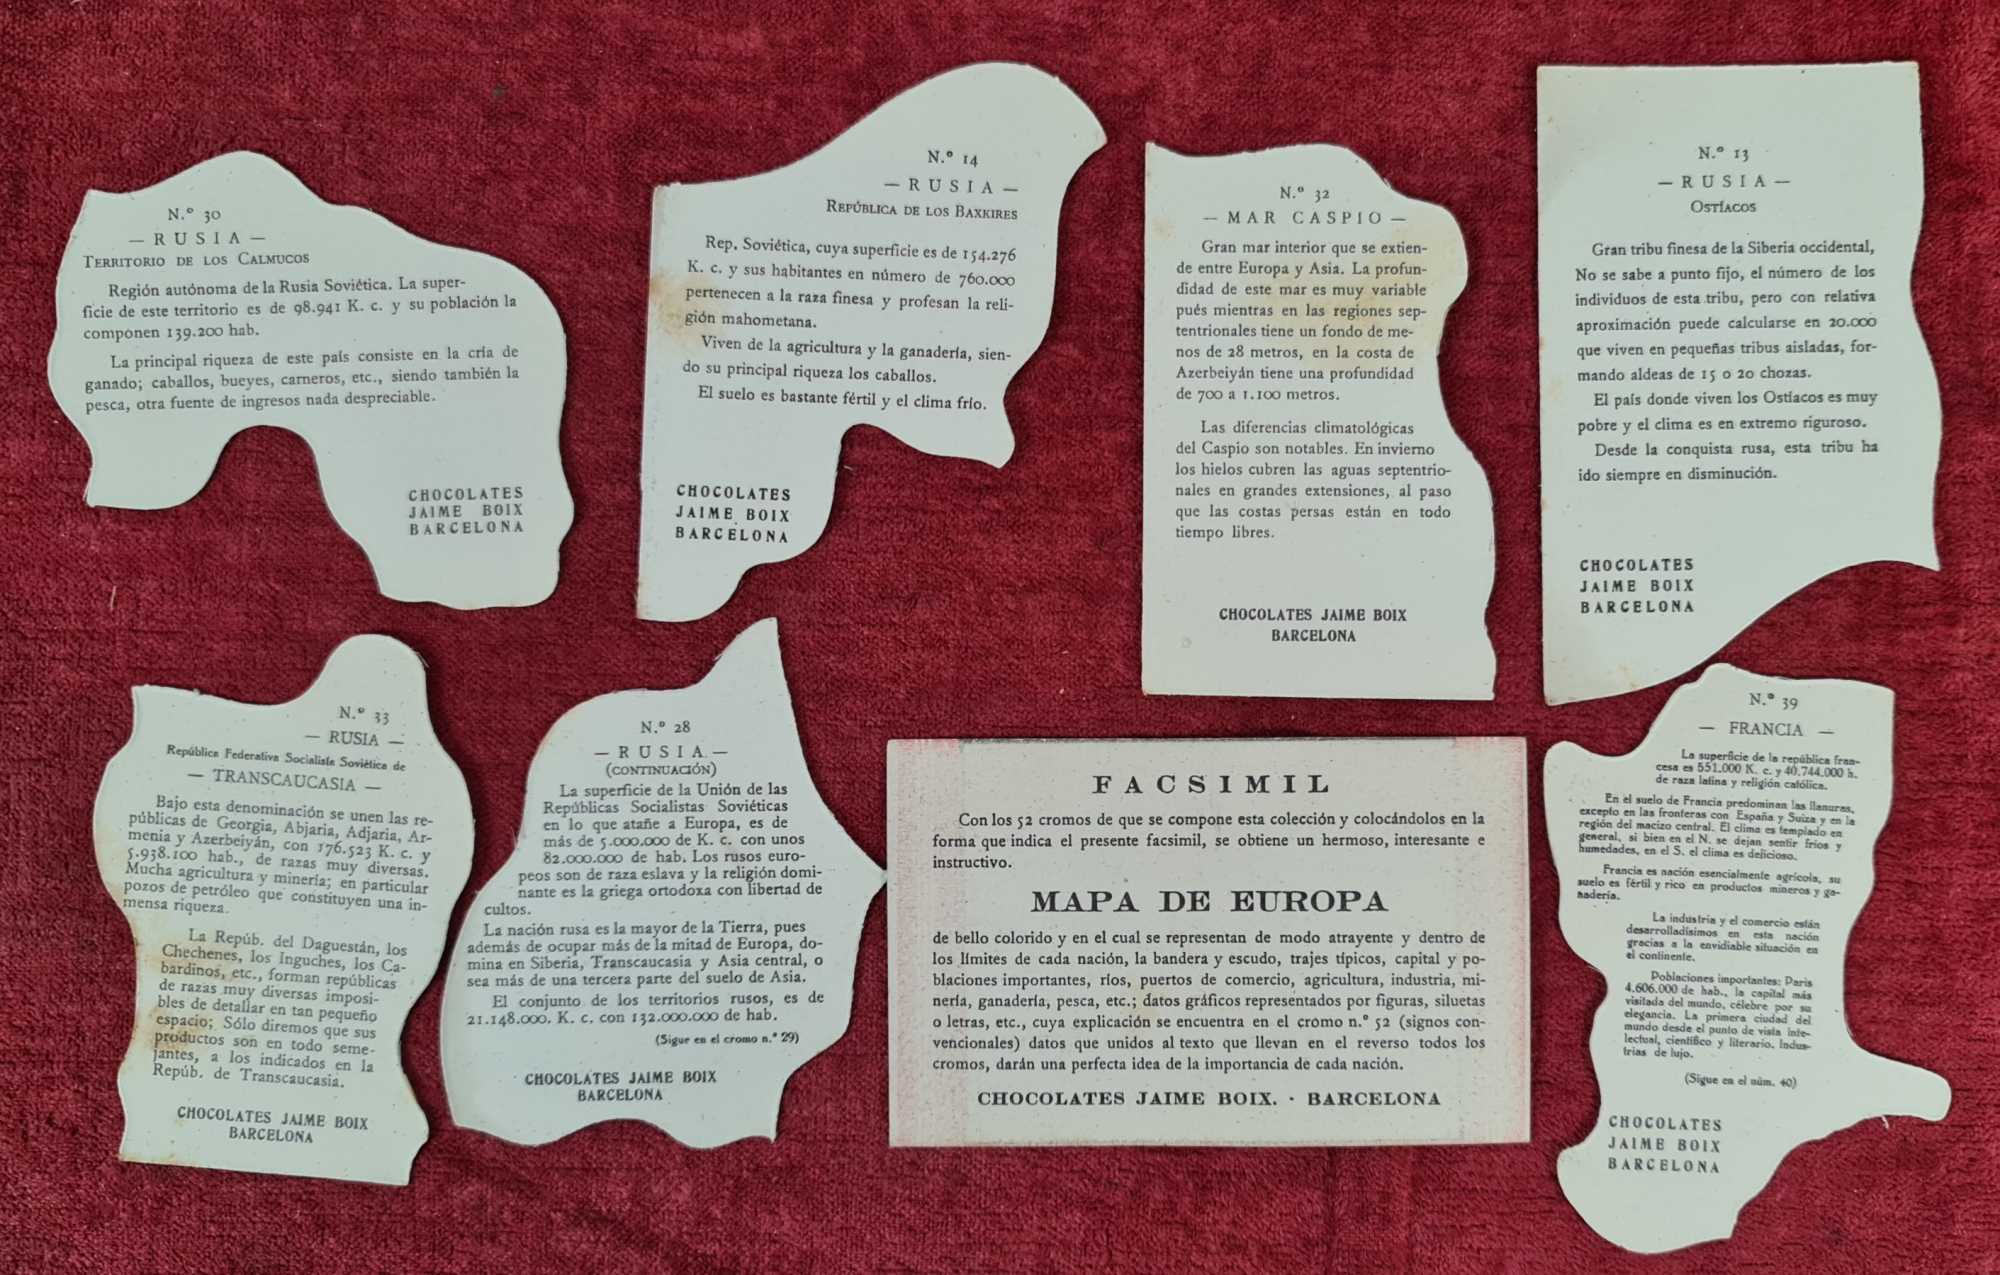 N.º 30
— RUSIA —
TERRITORIO DE LOS CALMUCOS
Región autónoma de la Rusia Soviética. La super-
ficie de este territorio es de 98.941 K. c. y su población la
componen 139.200 hab.
La principal riqueza de este país consiste en la cría de
ganado; caballos, bueyes, carneros, etc., siendo también la
pesca, otra fuente de ingresos nada despreciable.
CHOCOLATES
JAIME BOIX
BARCELONA
N.º 14
— RUSIA —
REPÚBLICA DE LOS BAXKIRES
Rep. Soviética, cuya superficie es de 154.276
K. c. y sus habitantes en número de 760.000
pertenecen a la raza finesa y profesan la reli-
gión mahometana.
Viven de la agricultura y la ganadería, sien-
do su principal riqueza los caballos.
El suelo es bastante fértil y el clima frío.
CHOCOLATES
JAIME BOIX
BARCELONA
N.º 32
— MAR CASPIO —
Gran mar interior que se extien-
de entre Europa y Asia. La profun-
didad de este mar es muy variable
pués mientras en las regiones sep-
tentrionales tiene un fondo de me-
nos de 28 metros, en la costa de
Azerbeiyán tiene una profundidad
de 700 a 1.100 metros.
Las diferencias climatológicas
del Caspio son notables. En invierno
los hielos cubren las aguas septentrio-
nales en grandes extensiones, al paso
que las costas persas están en todo
tiempo libres.
CHOCOLATES JAIME BOIX
BARCELONA
N.º 13
— RUSIA —
OSTÍACOS
Gran tribu finesa de la Siberia occidental,
No se sabe a punto fijo, el número de los
individuos de esta tribu, pero con relativa
aproximación puede calcularse en 20.000
que viven en pequeñas tribus aisladas, for-
mando aldeas de 15 o 20 chozas.
El país donde viven los Ostíacos es muy
pobre y el clima es en extremo riguroso.
Desde la conquista rusa, esta tribu ha
ido siempre en disminución.
CHOCOLATES
JAIME BOIX
BARCELONA
N.º 33
— RUSIA —
República Federativa Socialista Soviética de
— TRANSCAUCASIA —
Bajo esta denominación se unen las re-
públicas de Georgia, Abjaria, Adjaria, Ar-
menia y Azerbeiyán, con 176.523 K. c. y
5.938.100 hab., de razas muy diversas.
Mucha agricultura y minería; en particular
pozos de petróleo que constituyen una in-
mensa riqueza.
La Repúb. del Daguestán, los
Chechenes, los Inguches, los Ca-
bardinos, etc., forman repúblicas
de razas muy diversas imposi-
bles de detallar en tan pequeño
espacio; Sólo diremos que sus
productos son en todo seme-
jantes, a los indicados en la
Repúb. de Transcaucasia.
CHOCOLATES JAIME BOIX
BARCELONA
N.º 28
— RUSIA —
(CONTINUACIÓN)
La superficie de la Unión de las
Repúblicas Socialistas Soviéticas
en lo que atañe a Europa, es de
más de 5.000.000 de K. c. con unos
82.000.000 de hab. Los rusos euro-
peos son de raza eslava y la religión domi-
nante es la griega ortodoxa con libertad de
cultos.
La nación rusa es la mayor de la Tierra, pues
además de ocupar más de la mitad de Europa, do-
mina en Siberia, Transcaucasia y Asia central, o
sea más de una tercera parte del suelo de Asia.
El conjunto de los territorios rusos, es de
21.148.000. K. c. con 132.000.000 de hab.
(Sigue en el cromo n.º 29)
CHOCOLATES JAIME BOIX
BARCELONA
FACSIMIL
Con los 52 cromos de que se compone esta colección y colocándolos en la
forma que indica el presente facsimil, se obtiene un hermoso, interesante e
instructivo.
MAPA DE EUROPA
de bello colorido y en el cual se representan de modo atrayente y dentro de
los límites de cada nación, la bandera y escudo, trajes típicos, capital y po-
blaciones importantes, ríos, puertos de comercio, agricultura, industria, mi-
nería, ganadería, pesca, etc.; datos gráficos representados por figuras, siluetas
o letras, etc., cuya explicación se encuentra en el cromo n.º 52 (signos con-
vencionales) datos que unidos al texto que llevan en el reverso todos los
cromos, darán una perfecta idea de la importancia de cada nación.
CHOCOLATES JAIME BOIX. · BARCELONA
N.º 39
— FRANCIA —
La superficie de la república fran-
cesa es 551.000 K. c. y 40.744.000 h.
de raza latina y religión católica.
En el suelo de Francia predominan las llanuras,
excepto en las fronteras con España y Suiza y en la
región del macizo central. El clima es templado en
general, si bien en el N. se dejan sentir fríos y
humedades, en el S. el clima es delicioso.
Francia es nación esencialmente agrícola, su
suelo es fértil y rico en productos mineros y ga-
nadería.
La industria y el comercio están
desarrolladísimos en esta nación
gracias a la envidiable situación en
el continente.
Poblaciones importantes: París
4.606.000 de hab., la capital más
visitada del mundo, célebre por su
elegancia. La primera ciudad del
mundo desde el punto de vista inte-
lectual, científico y literario. Indus-
trias de lujo.
(Sigue en el núm. 40)
CHOCOLATES
JAIME BOIX
BARCELONA